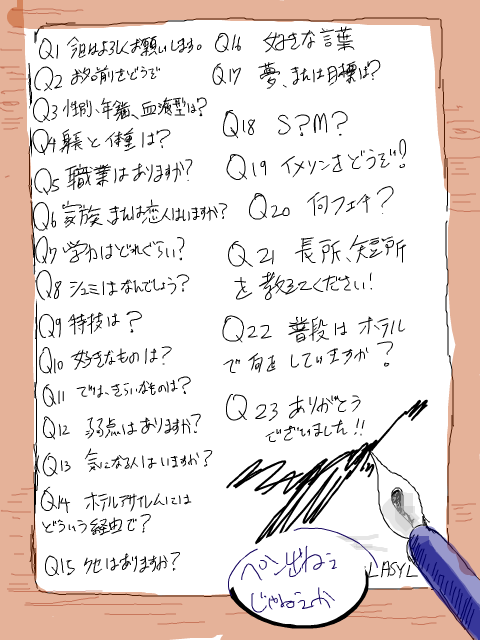 Q1 今日はよろしくお願いします。
Q2 お名前をどうぞ
Q3 性別、年齢、血液型は?
Q4 身長と体重は?
Q5 職業はありますか?
Q6 家族、または恋人はいますか?
Q7 学力はどれぐらい?
Q8 シュミはなんでしょう?
Q9 特技は?
Q10 好きなものは?
Q11 では、きらいなものは?
Q12 弱点はありますか?
Q13 気になる人はいますか?
Q14 ホテルアサイラムには
どういう経由で?
Q15 クセはありますか?
Q16 好きな言葉
Q17 夢、または目標は?
Q18 S?M?
Q19 イメソンをどうぞ!
Q20 何フェチ?
Q21 長所、短所
を教えてください!
Q22 普段はホテル
で何をしていますか?
Q23 ありがとう
ございました!!
ペン出ねえ
じゃねえか
LASYL